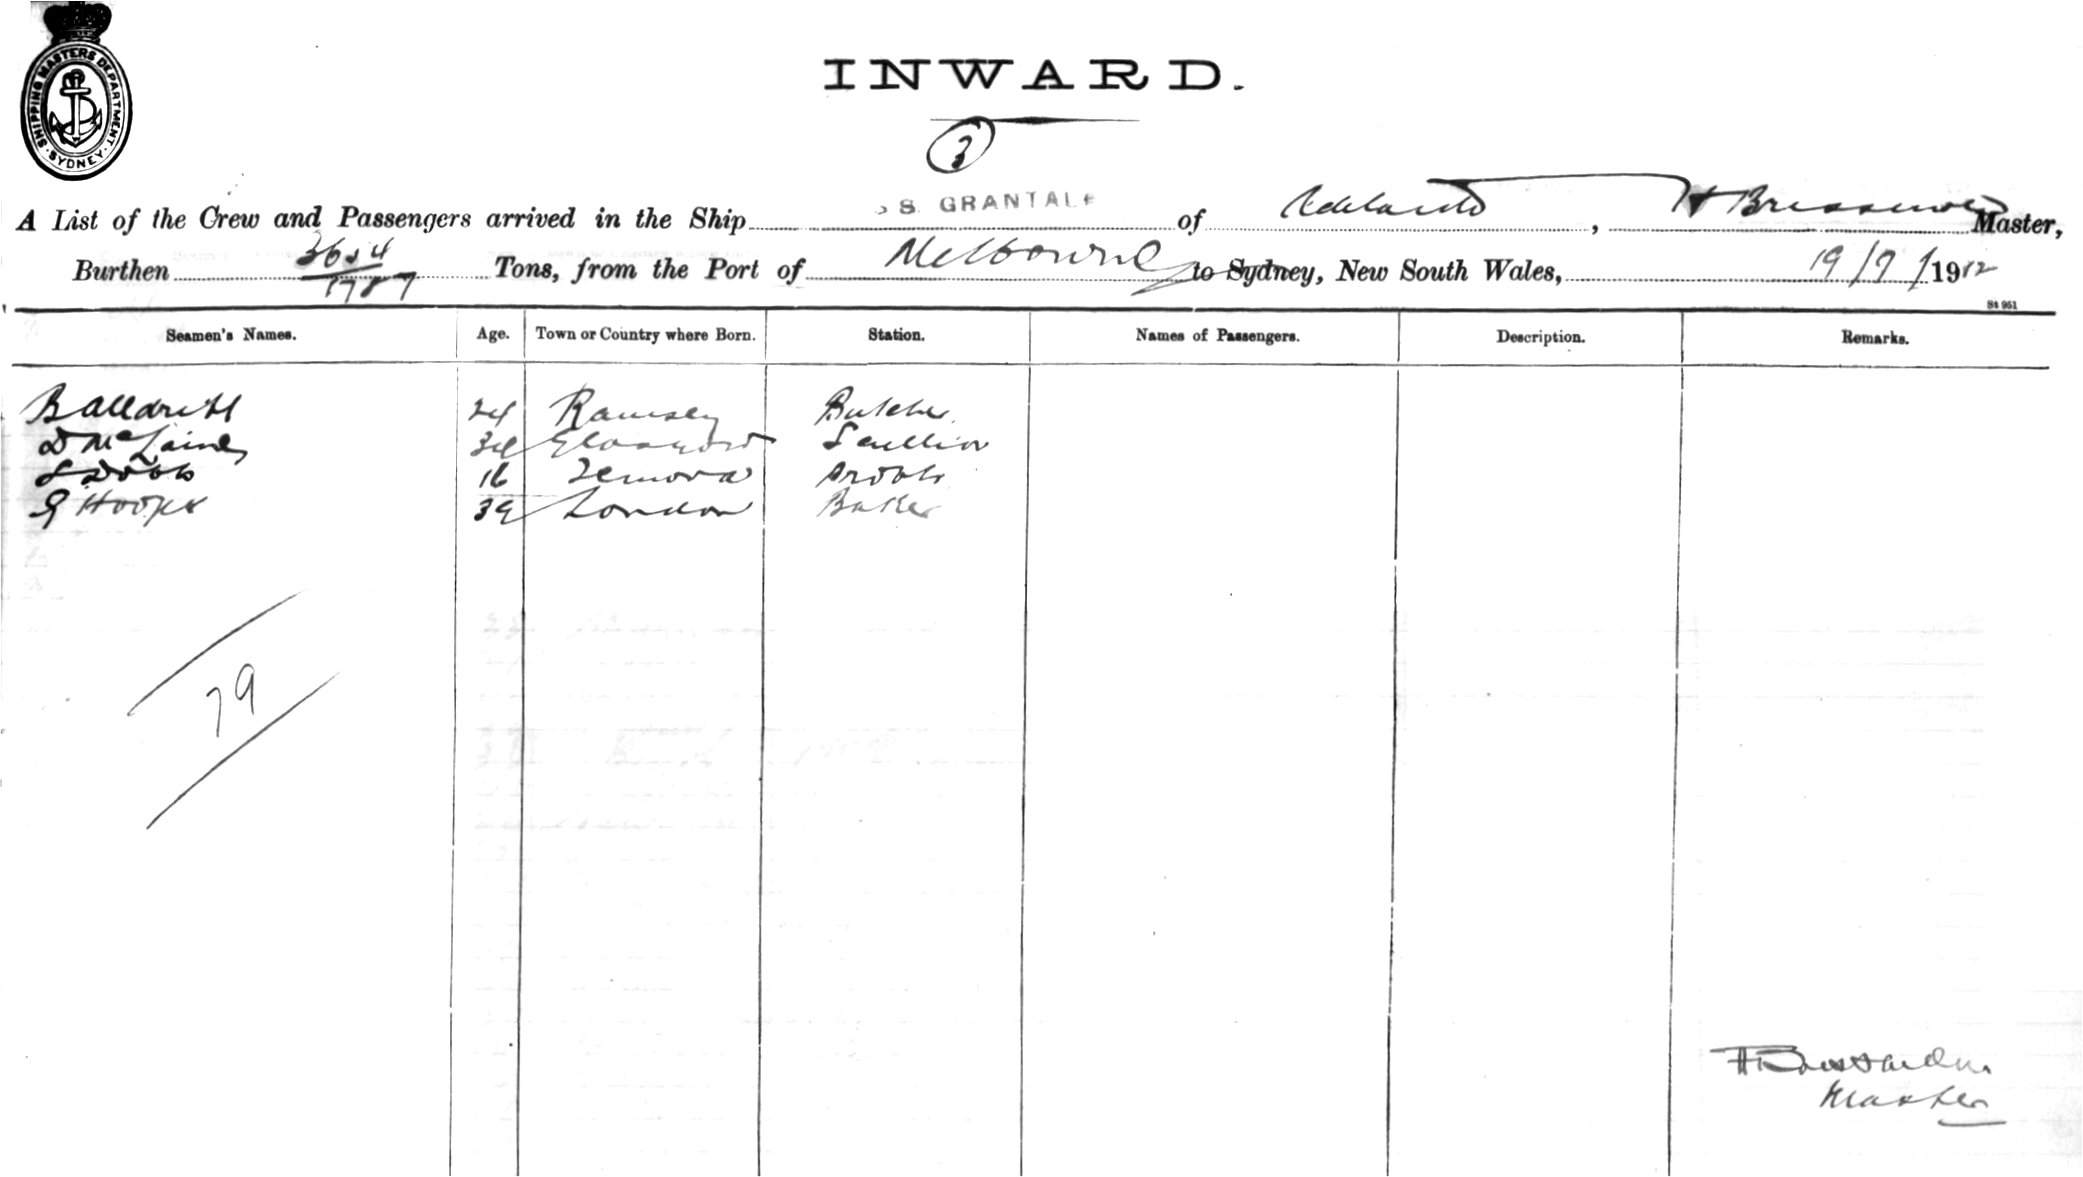 SHIPPING MASTERS DEPARTMENT. SYDNEY.
INWARD.
3
A List of the Crew and Passengers arrived in the Ship S. GRANTALA of Adelaide, H Master,
Burthen 3654 Tons, from the Port of Melbourne to Sydney, New South Wales, 19/7/1912
1787
St 951
Seamen's Names. Age. Town or Country where Born. Station. Names of Passengers. Description. Remarks.
24 Ramsey Butcher
D McLaine 34 Glasgow Scullion
S Dobb 16 Temora
G Hooper 39 London Baker
79
Master